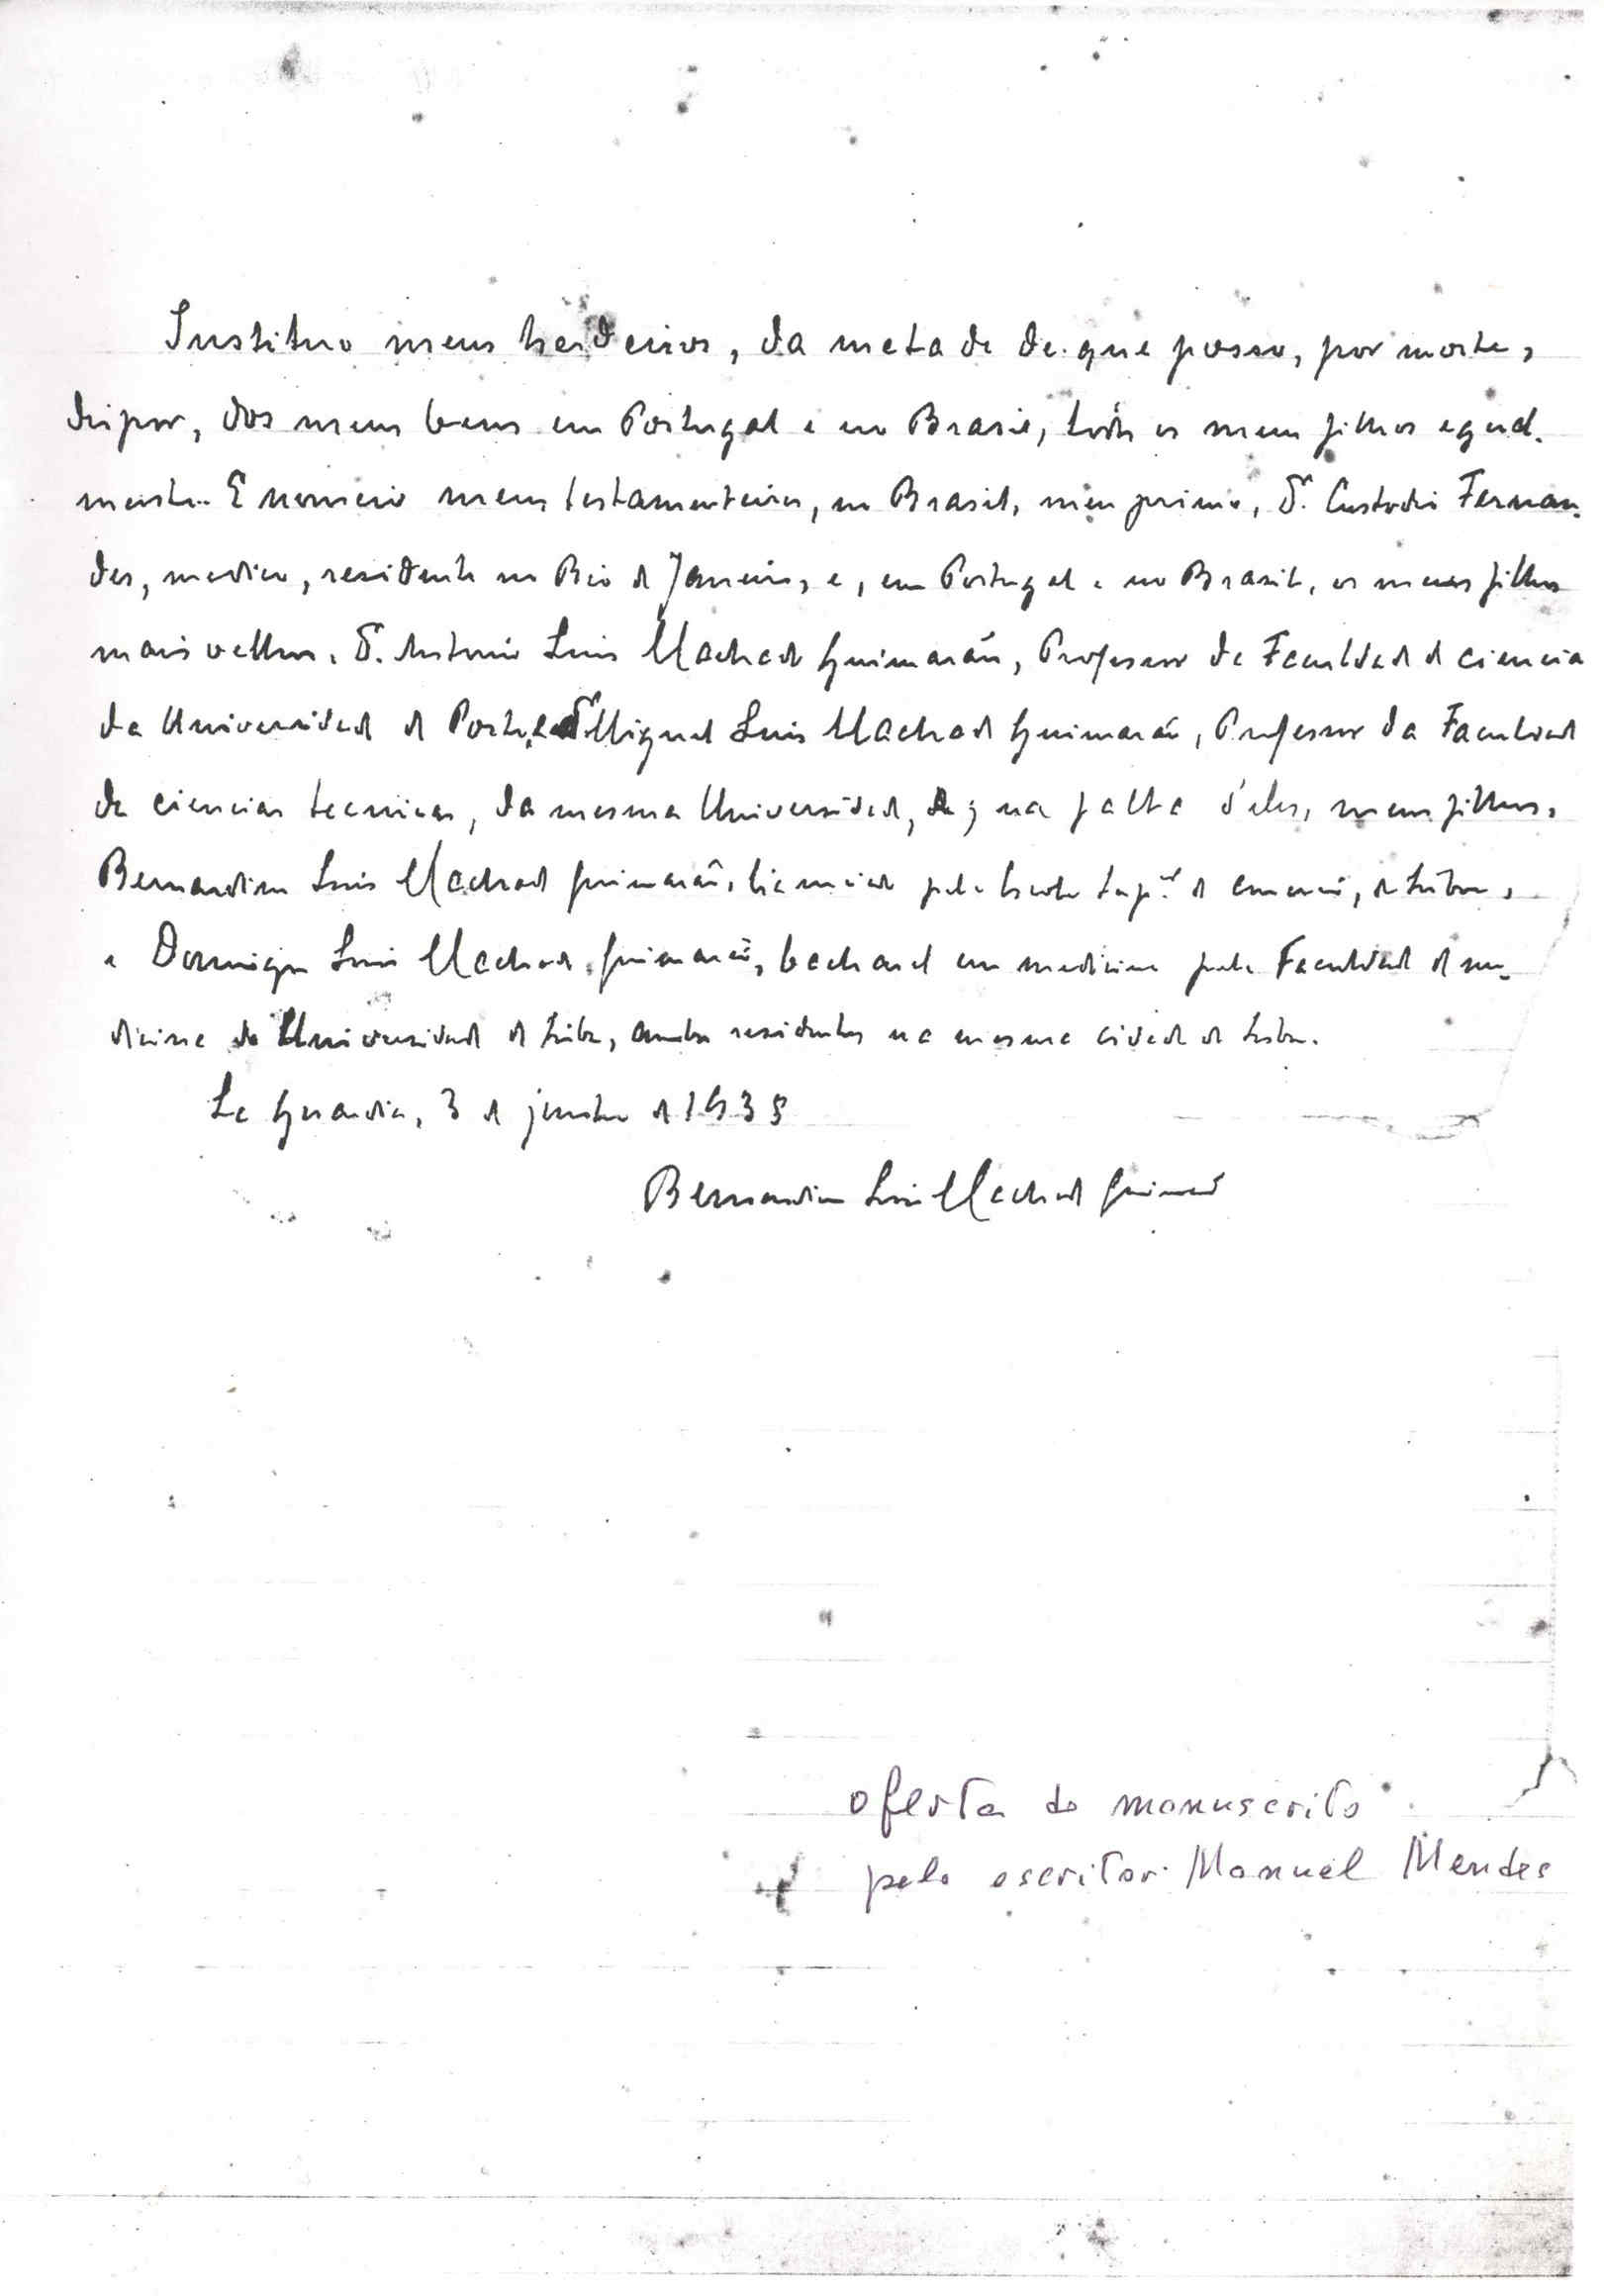 Instituo meus herdeiros, da metade de que posso, por morte,
dispor, dos meus bens em Portugal e no Brasil, todos os meus filhos egual-
mente. E nomeio meus testamenteiros, no Brasil, meu primo, Dr. Custodio Fernan-
des, medico, residente no Rio de Janeiro, e, em Portugal e no Brasil, os meus filhos
mais velhos, Dr. Antonio Luis Machado Guimarães, Professor da Faculdade de ciencias
da Universidade do Porto, e Dr. Miguel Luis Machado Guimarães, Professor da Faculdade
de ciencias tecnicas, da mesma Universidade, e, na falta d'eles, meus filhos,
Bernardino Luis Machado Guimarães, licenciado pela Escola Sup.or de comercio, de Lisboa,
e Domingos Luis Machado Guimarães, bacharel em medicina pela Faculdade de me-
dicina da Universidade de Lisboa, ambos residentes na mesma cidade de Lisboa.
La Guardia, 3 de junho de 1935
Bernardino Luis Machado Guimarães
oferta do manuscrito
pelo escritor Manuel Mendes